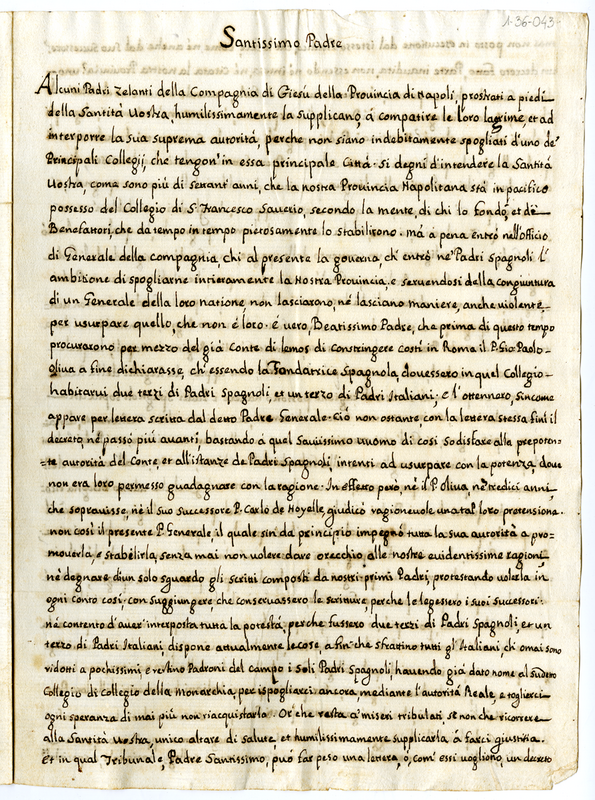 1-36-043-
Santissimo Padre
Alcuni Padri Zelanti della Compagnia di Giesù della Provincia di Napoli, prostrati a piedi
della Santità Vostra, humilissimamente la supplicano, à compatire le loro lagrime, et ad
interporre la sua suprema autorità, perche non siano indebitamente spogliati d'uno de'
Principali Collegij, che tengon'in essa principale Città. Si degni d'intendere la Santità
Vostra, come sono più di settant'anni, che la nostra Provincia Napolitana stà in pacifico
possesso del Collegio di S. Francesco Saverio, secondo la mente, di chi lo fondò, et de
Benefattori, che da tempo in tempo pietosamente lo stabilirono. mà a pena entrò nell'officio
di Generale della compagnia, chi al presente la governa, ch'entrò ne' Padri Spagnoli l'
ambitione di spogliarne intieramente la Nostra Provincia, e servendosi della congiuntura
di un Generale della loro natione, non lasciarono, né lasciano maniere, anche violente,
per usurpare quello, che non è loro. è vero, Beatissimo Padre, che prima di questo tempo
procurarono per mezzo del già Conte di lemos di constringere costì in Roma il P. Gio: Paolo
Oliva a fine dichiarasse, ch'essendo la Fondatrice Spagnola, dovessero in quel Collegio
habitarvi due terzi di Padri Spagnoli, et un terzo di Padri Italiani. E l'ottennero, sincome
appare per lettera scritta dal detto Padre Generale. Ciò non ostante, con la lettera stessa finì il
decreto, né passò più avanti, bastando à quel Saviissimo uuomo di così sodisfare alla prepoten=
=te autorità del Conte, et all'istanze de Padri Spagnoli, intensi ad usurpare con la potenza, dove
non era loro permesso guadagnare con la ragione. In effetto però, né il P. Oliva, ne' tredici anni,
che sopravisse, né il suo successore P. Carlo de Noyelle, giudicò ragionevole una tal loro pretensione.
non così il presente P. Generale, il quale sin da principio impegnò tutta la sua autorità a pro=
muoverla, e stabilirla, senza mai non volere dare orecchio alle nostre evidentissime ragioni,
né degnare d'un solo sguardo gli scritti composti da nostri primi Padri, protestando volerla in
ogni conto così, con suggiungere che conservassero le scritture, perche le legessero i suoi successori.
né contento d'aver interposta tutta la potestà, perche fussero due terzi di Padri Spagnoli, et un
terzo di Padri Italiani, dispone attualmente le cose, a fin che sfrattino tutti gl'Italiani, ch'omai sono
ridotti a pochissimi, e restino Padroni del campo i soli Padri Spagnoli, havendo già dato nome al sudetto
Collegio di Collegio della Monarchia, per ispogliarci ancora, mediante l'autorità Reale, e toglierci
ogni speranza di mai più non riacquistarla. Or che resta a' miseri tribulati, se non che ricorrere
alla Santità Vostra, unico altare di salute, et humilissimamente supplicarla à farci giustitia.
Et in qual Tribunale, Padre Santissimo, può far peso una lettera, ò, com'essi vogliono, un decreto